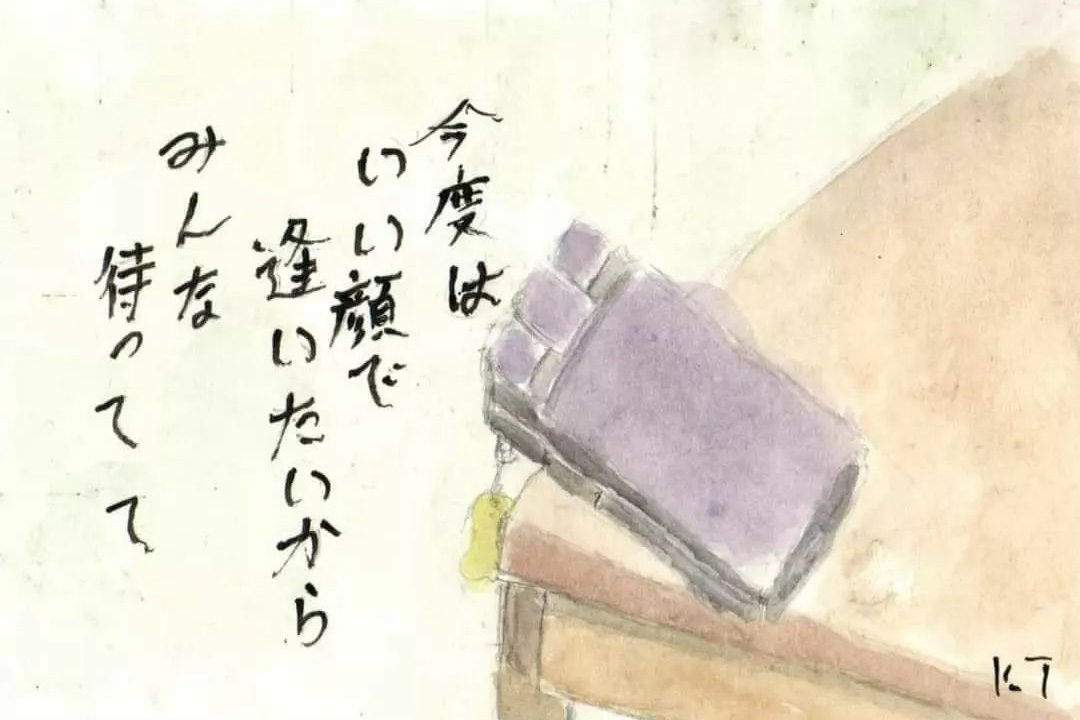 今度は
いい顔で
逢いたいから
みんな
待ってて
K.T